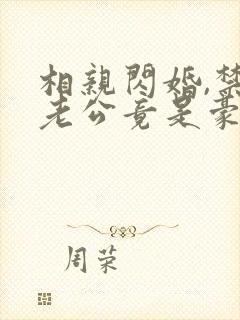 相親閃婚,禁
老公竟是豪
周荣